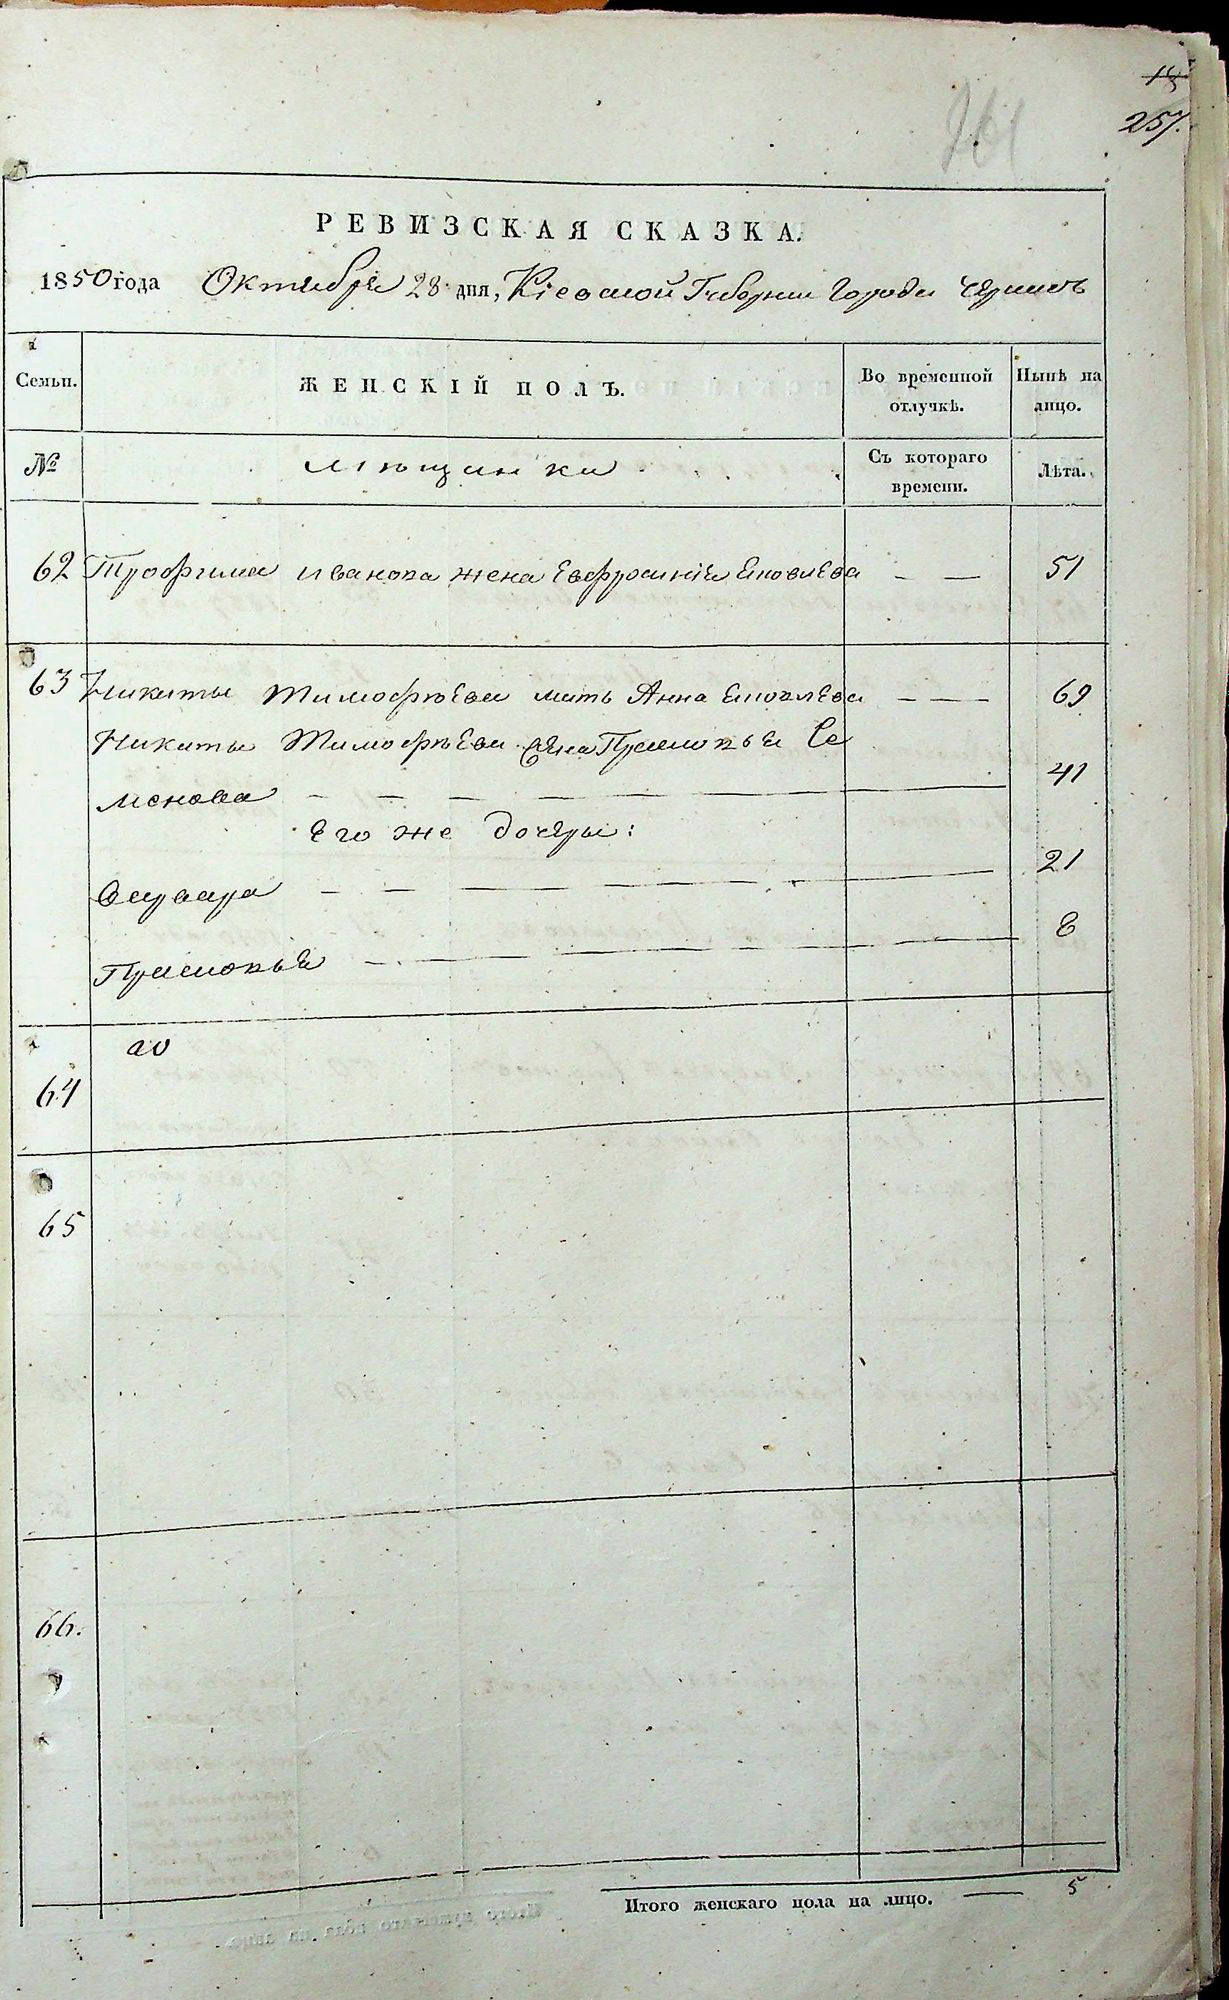 18
257.
261
РЕВИЗСКАЯ СКАЗКА.
1850 года Октября 28 дня, Кіевской Губерніи Города
Семьи.
ЖЕНСКІЙ ПОЛЪ.
Во временной отлучкѣ.
Нынѣ на лицо.
№
мѣщанки
Съ котораго времени.
Лѣта.
62 Трофима Иванова жена Евфросинія Яковлева — — 51
63 Никиты Тимофѣева мать Анна Яковлева — — — 69
Никиты Тимофѣева жена Прасковья Се
менова — — — — — — 41
Его же дочери:
Варвара — — — — — 21
Прасковья — — — — —
64
65
66.
Итого женскаго пола на лицо. — 5